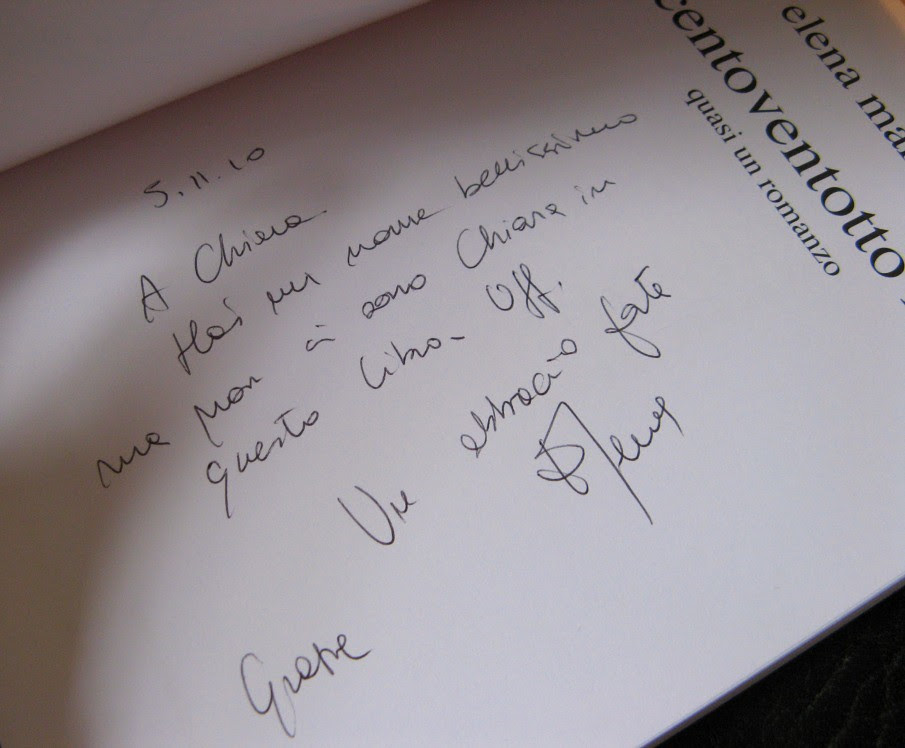 elena ma
centoventotto
quasi un romanzo
5.11.10
A Chiara
Hai un nome bellissimo
ma non ci sono Chiara in
questo libro- Uff.
Un abbraccio forte
Elena
Grazie